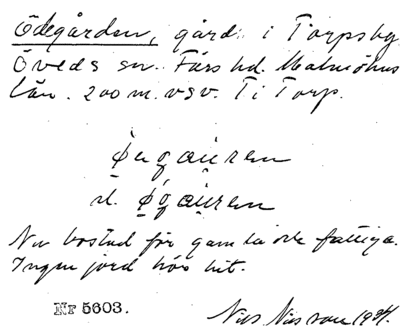 Ödegården, gård: i Torpsby
Öveds sn. Färs hd. Malmöhus
län. 200 m. vsv. Ti Torp.
Nu bostad för gamla och fattiga.
Ingen jord hör hit.
Nr 5603.
Nils Nilsson 1934.